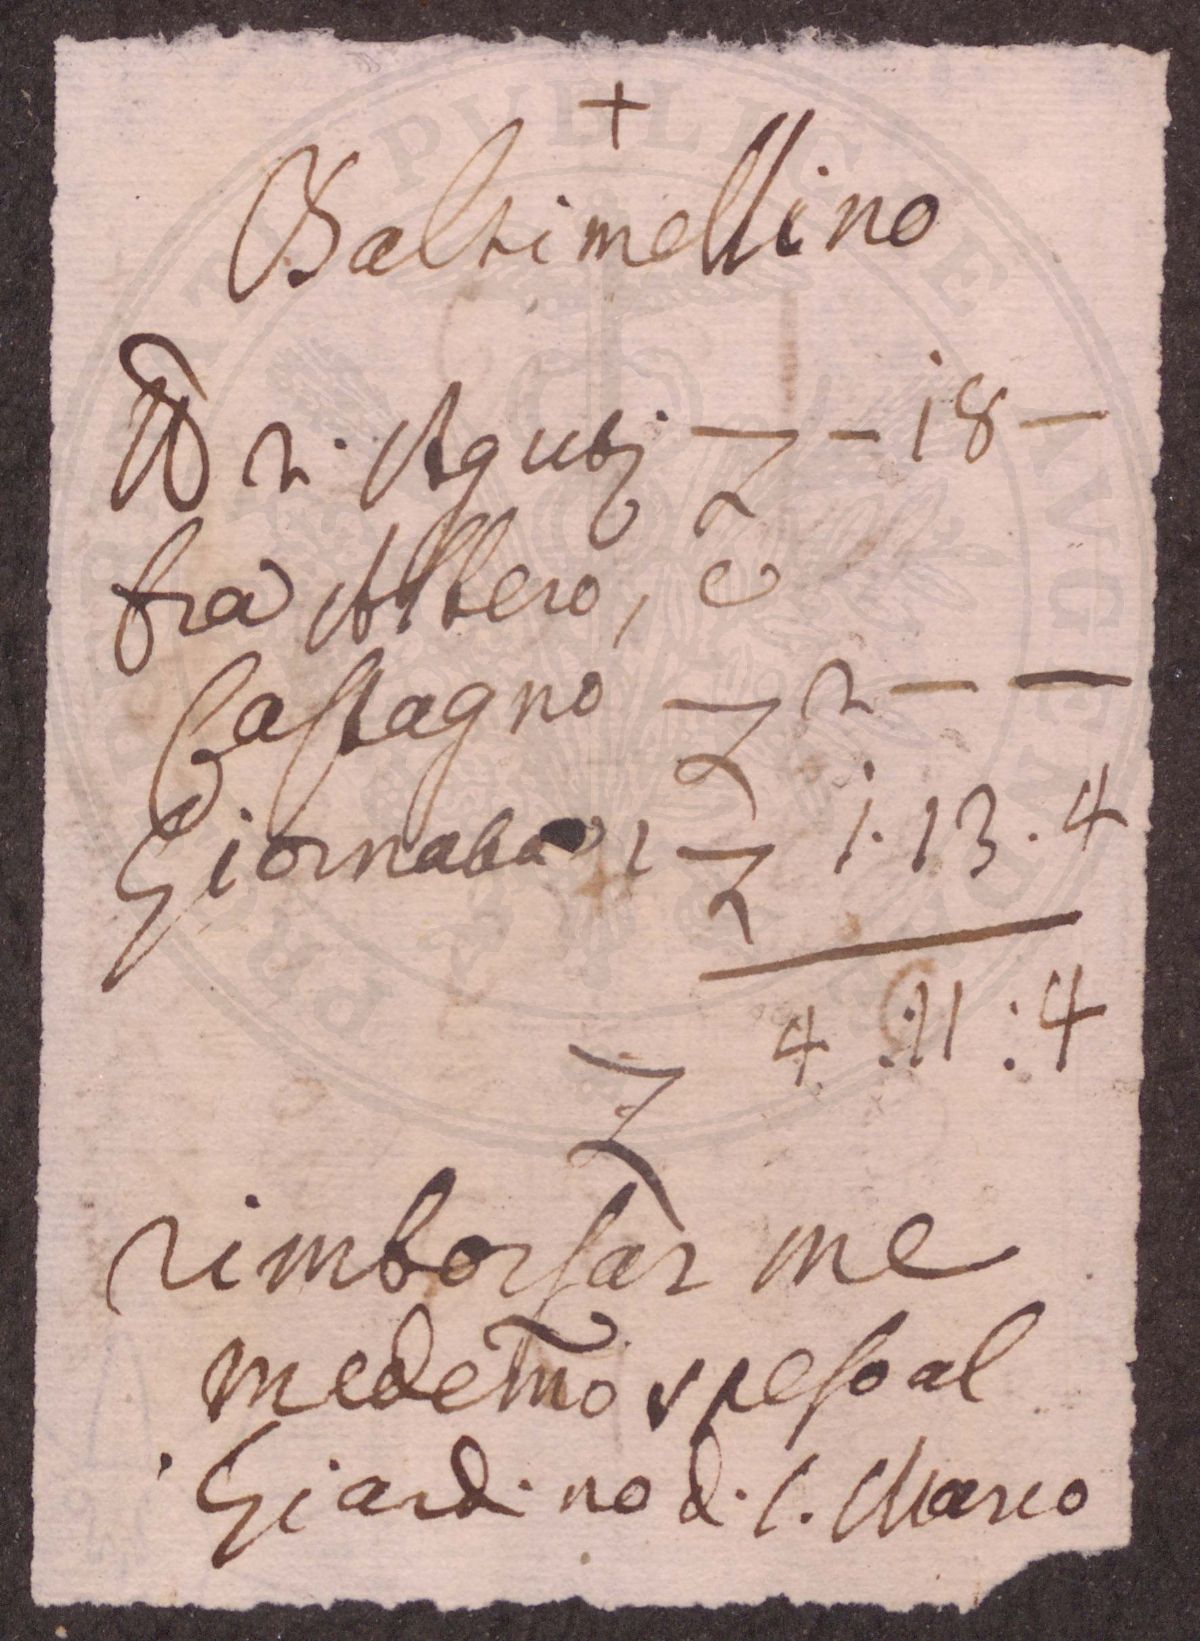 +
Baltimellino
P 2. Agutj £ - 18 -
fra Albero, e
Castagno £ 2 - -
Giornata 1 £ 1. 13. 4
4 : 11 : 4
£
rimborsar me
medemo speso al
Giardino d. S. Marco